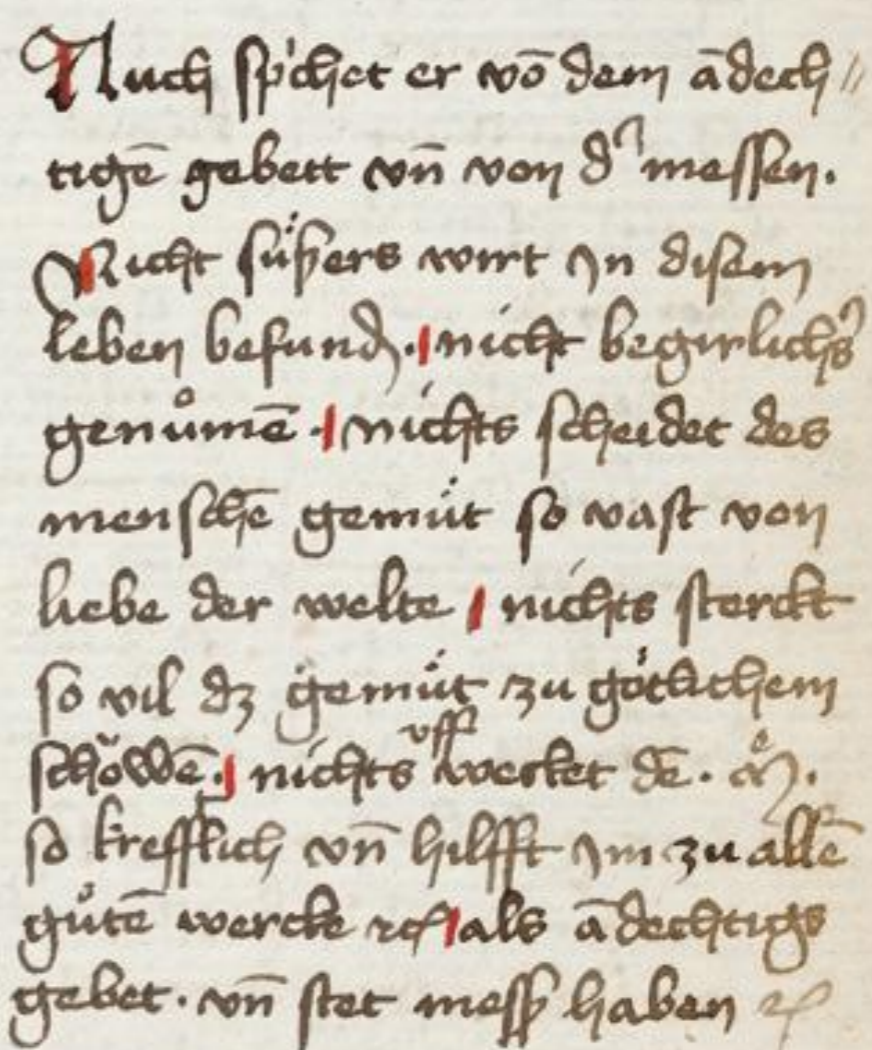 Auch sp'chet er vō dem ādech//
tigē gebett vn̄ von d' messen.
Nicht süßers wirt jn disem
leben befund. nicht begirlichs'
genůmē. nichts scheidet des
menschē gemüt so vast von
liebe der welte nichts sterckt
so vil dz gemüt zu götlichem
schǒwē. nichts vff wecket dē. m̊.
so krefftlich vn̄ hilfft jm zu allē
gůtē wercke ꝛc als ādechtigs
gebet. vn̄ stet meß haben ꝛc